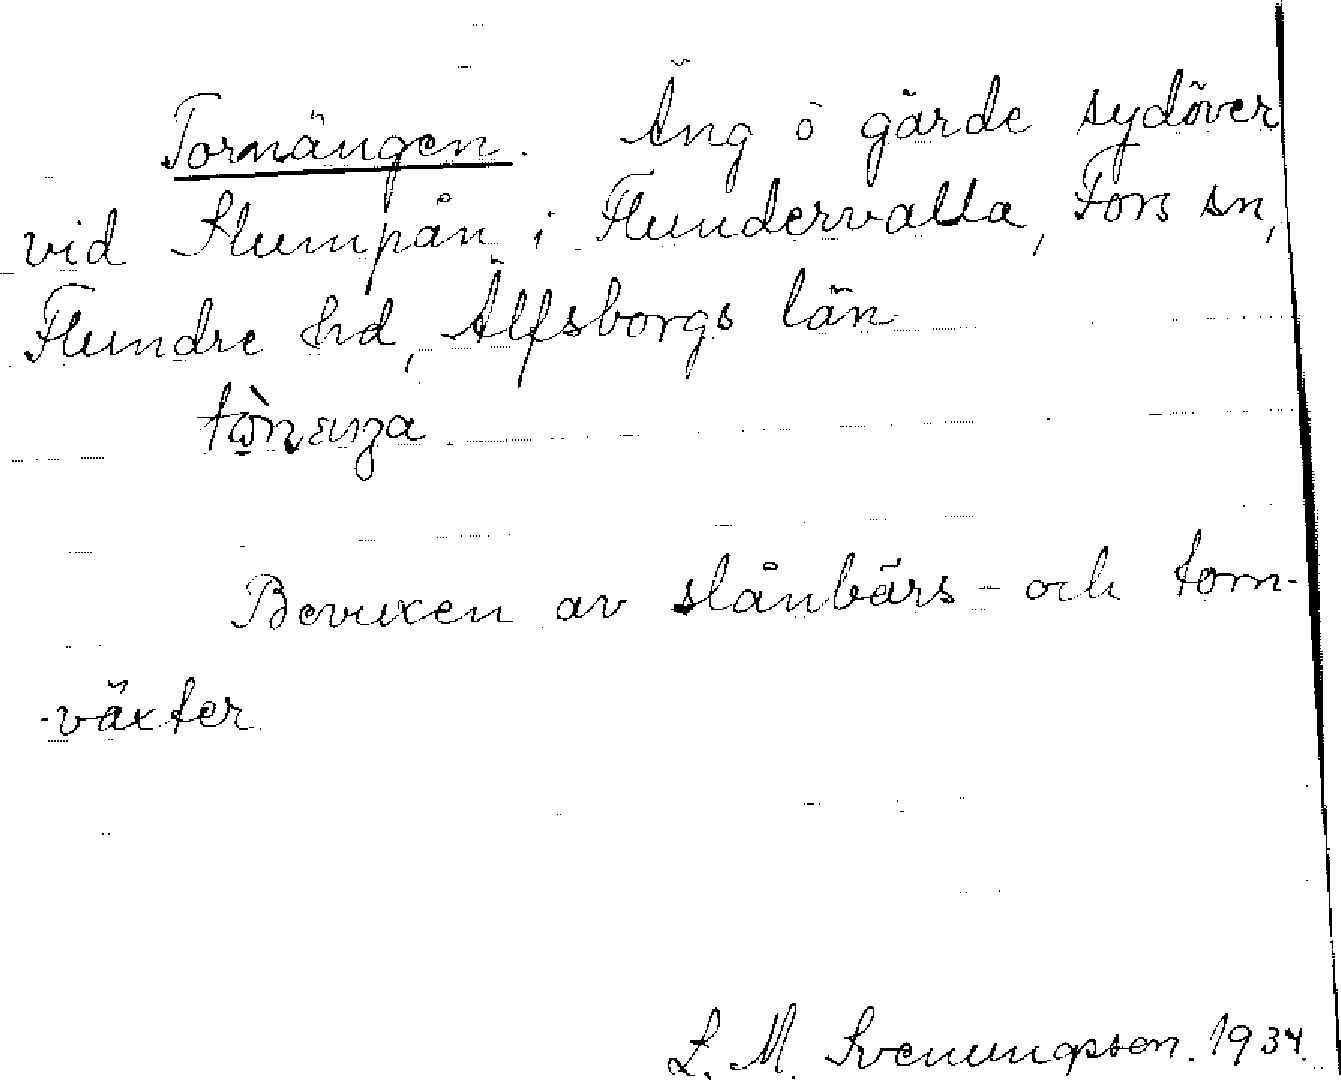 Tornängen. Äng ö gärde sydöver
vid Slumpån i Flundervalla, Fors sn,
Flundre hd, Älfsborgs län
Bevuxen av slånbärs- och torn-
-växter
L. M. Svenungsson. 1934.